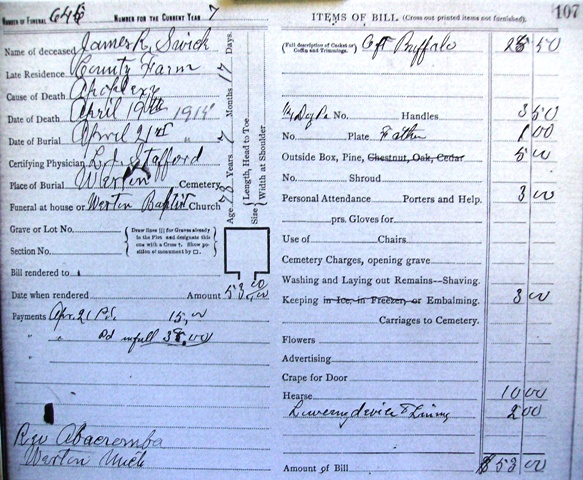 NUMBER OF FUNERAL 646 NUMBER FOR THE CURRENT YEAR 7
Name of deceased James R. Swick
Late Residence County Farm
Cause of Death Apoplexy
Date of Death April 19th 1915
Date of Burial April 21st "
Certifying Physician L. J. Stafford
Place of Burial Warten Cemetery
Funeral at house or Warten Baptist Church
Grave or Lot No.
Section No.
Draw lines ||| for Graves already in the Plot and designate this one with a Cross †. Show position of monument by □.
Bill rendered to
Date when rendered Amount 53 00
Payments Apr. 21 Pd. 15,00
" " Pd in full 38,00
"
"
Rev Abacromba
Warten Mich
Age Years Months 17 Days.
Size Length, Head to Toe
Width at Shoulder
ITEMS OF BILL (Cross out printed items not furnished). 107
(Full description of Casket or Coffin and Trimmings). Buffalo 50
No. Handles 3 50
No. Plate Father 1 00
Outside Box, Pine, Chestnut, Oak, Cedar 5 00
No. Shroud
Personal Attendance Porters and Help. 3 00
prs. Gloves for
Use of Chairs
Cemetery Charges, opening grave
Washing and Laying out Remains--Shaving.
Keeping in Ice, in Freezer, or Embalming. 3 00
Carriages to Cemetery.
Flowers
Advertising
Crape for Door
Hearse 10 00
Lowering device & Lining 2 00
Amount of Bill $53 00